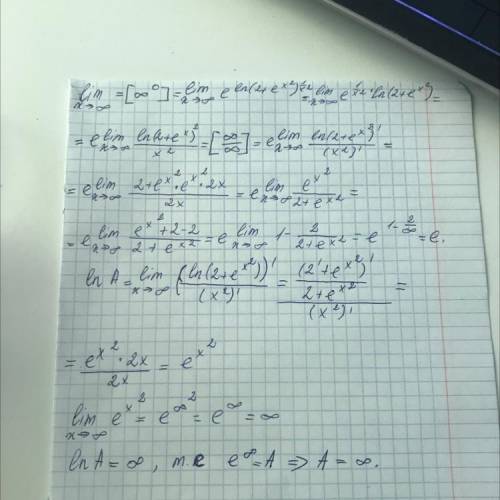 lim x→∞ = [∞⁰] = lim x→∞ e^(ln(2+e^(x²))^(1/x²)) = lim x→∞ e^(1/x² · ln(2+e^(x²))) =
= e lim x→∞ ln(2+e^x)²/x² = [∞/∞] = e lim x→∞ ln(2+e^(x²))'/(x²)' =
= e lim x→∞ (2+e^(x²)·e^(x²)·2x)/2x = e lim x→∞ e^(x²)/(2+e^(x²)) =
= e lim x→∞ (e^(x²)+2-2)/(2+e^(x²)) = e lim x→∞ 1 - 2/(2+e^(x²)) = e^(1-2/∞) = e.
ln A = lim x→∞ ((ln(2+e^(x²)))'/(x²)' = ((2'+e^(x²))'/(2+e^(x²)))/(x²)' =
= (e^(x²)·2x)/2x = e^(x²)
lim x→∞ e^(x²) = e^(∞²) = e^∞ = ∞
ln A = ∞, т.е e^∞ = A ⇒ A = ∞.